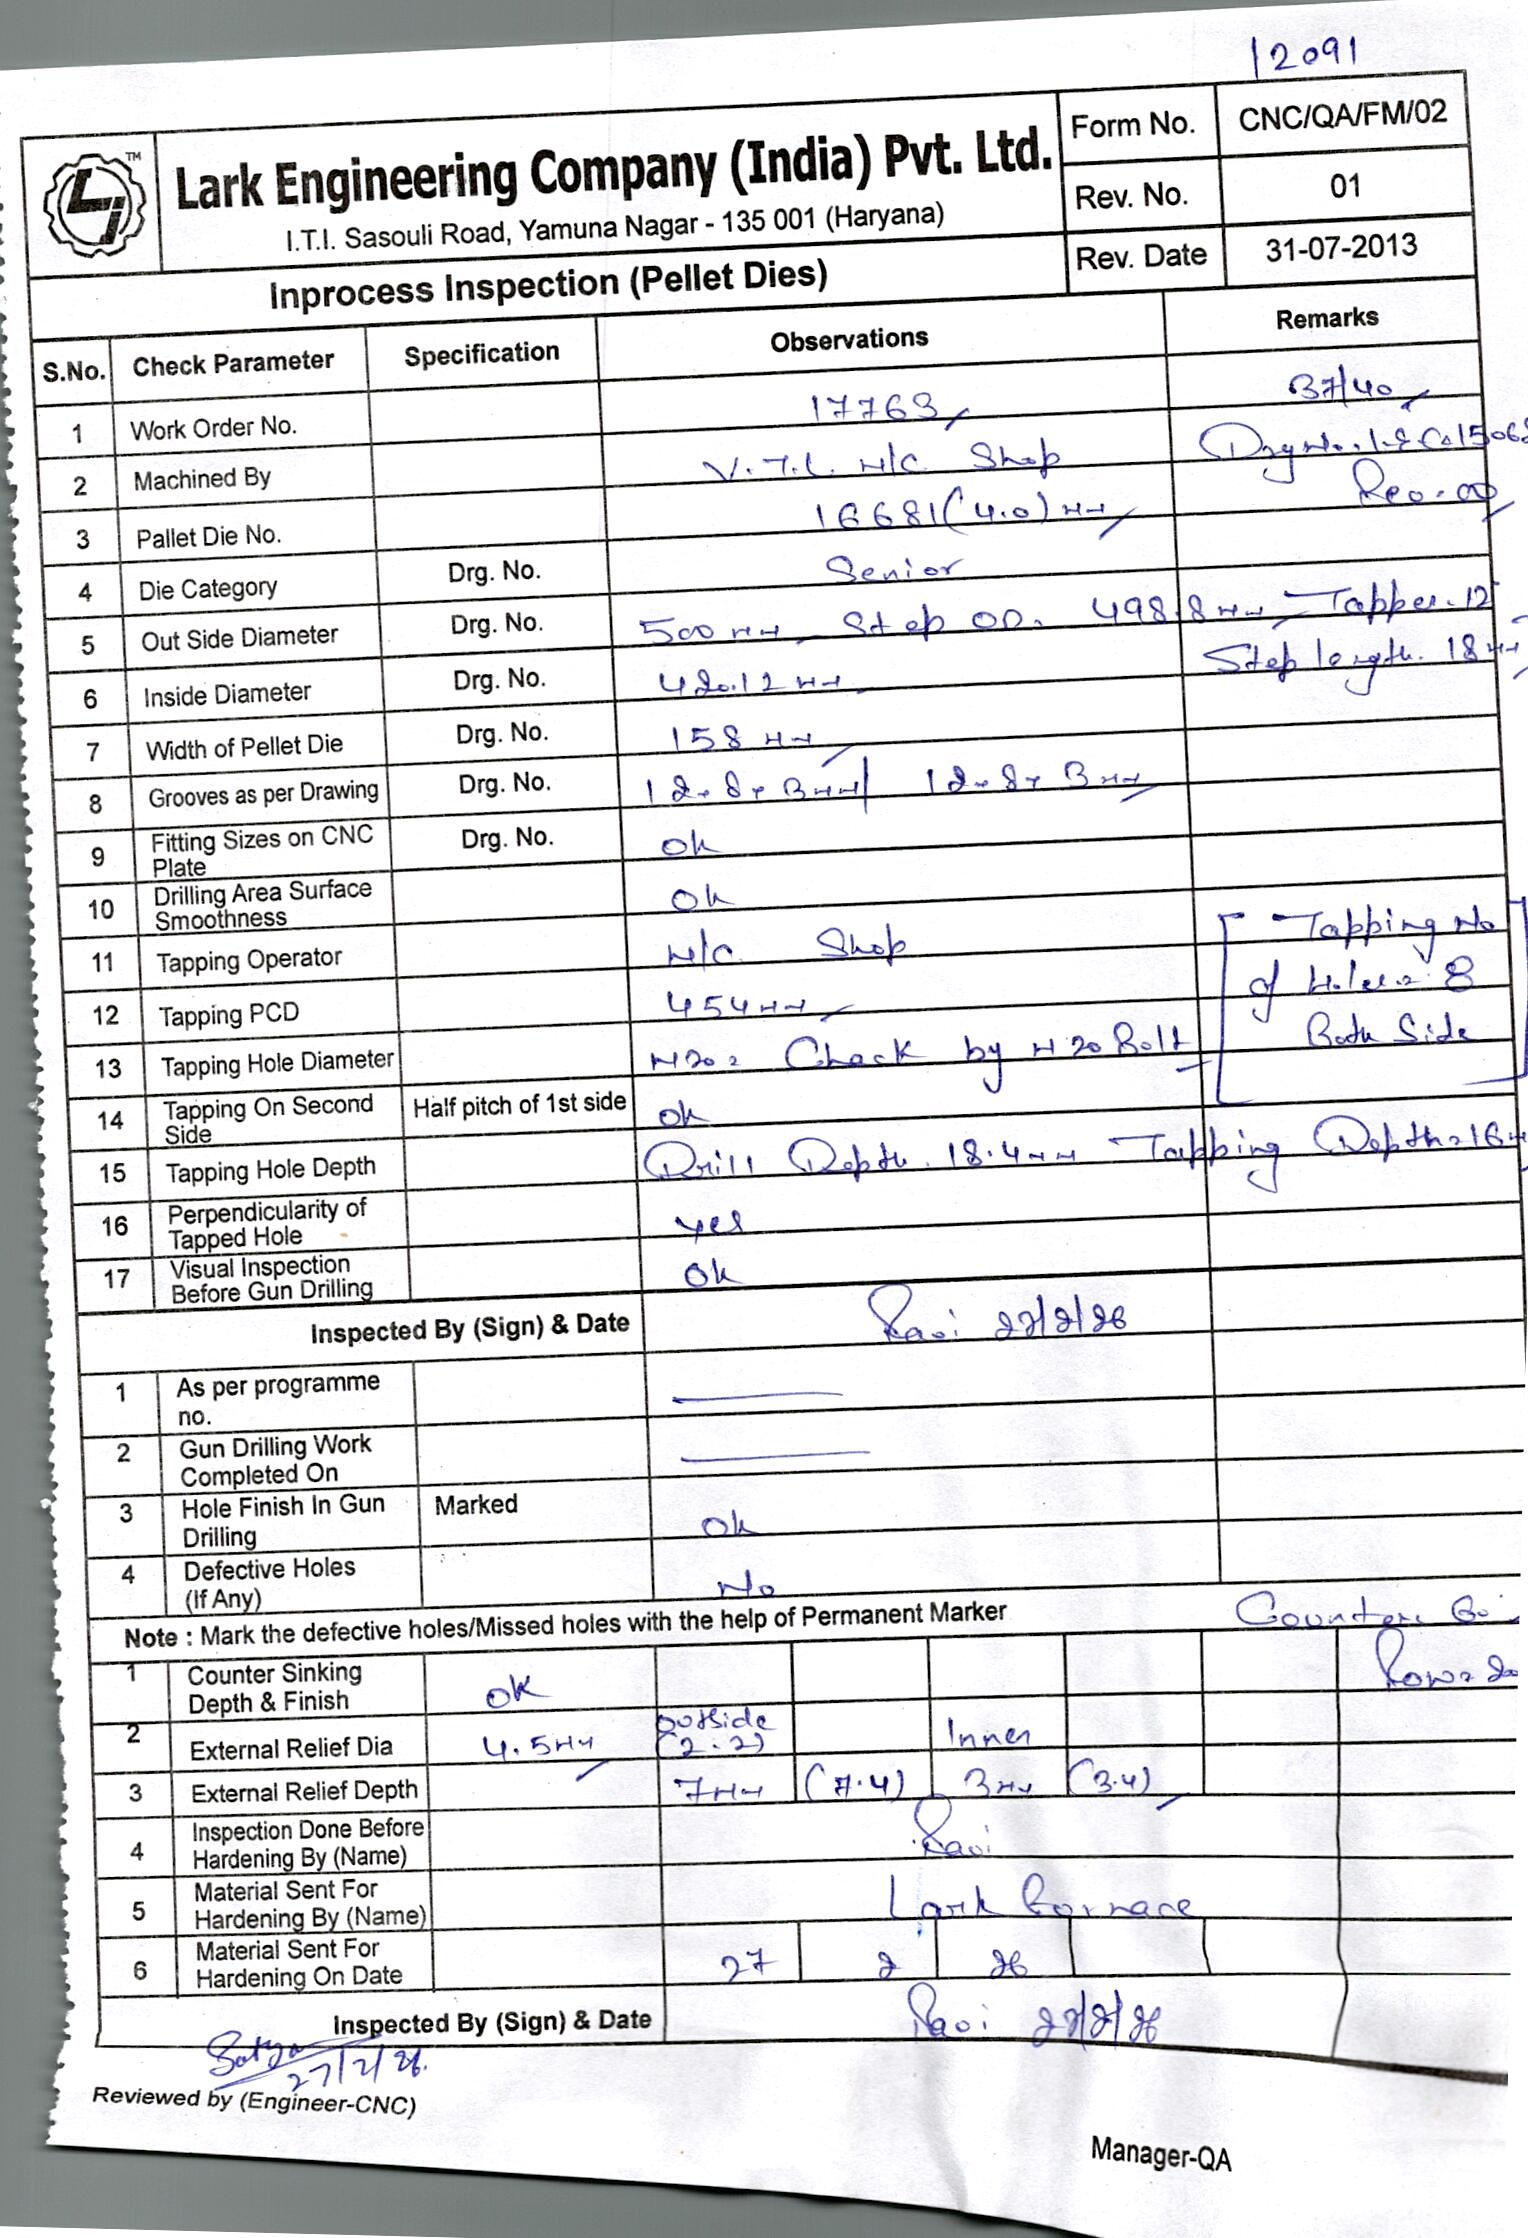 12091
Lark Engineering Company (India) Pvt. Ltd.
I.T.I. Sasouli Road, Yamuna Nagar - 135 001 (Haryana)
Form No. CNC/QA/FM/02
Rev. No. 01
Rev. Date 31-07-2013
Inprocess Inspection (Pellet Dies)
S.No. Check Parameter Specification Observations Remarks
1 Work Order No. 17763 37/40
2 Machined By V.T.L. M/C Shop Drg No.
3 Pallet Die No. 16681 (4.0) MM
4 Die Category Drg. No. Senior
5 Out Side Diameter Drg. No. 500 MM Step OD. 498.8 MM Tapper. 12
6 Inside Diameter Drg. No. 420.12 MM Step length. 18 MM
7 Width of Pellet Die Drg. No. 158 MM
8 Grooves as per Drawing Drg. No. 12 8 3 MM / 12 8 3 MM
9 Fitting Sizes on CNC Plate Drg. No. Ok
10 Drilling Area Surface Smoothness Ok
11 Tapping Operator M/C Shop
12 Tapping PCD 454 MM
13 Tapping Hole Diameter M20 = Check by M20 Bolt
Tapping No
of Holes = 8
Both Side
14 Tapping On Second Side Half pitch of 1st side Ok
15 Tapping Hole Depth Drill Depth. 18.4 MM Tapping Depth = 16
16 Perpendicularity of Tapped Hole yes
17 Visual Inspection Before Gun Drilling Ok
Inspected By (Sign) & Date Ravi 27/2/26
1 As per programme no.
2 Gun Drilling Work Completed On
3 Hole Finish In Gun Drilling Marked Ok
4 Defective Holes (If Any) No
Note : Mark the defective holes/Missed holes with the help of Permanent Marker
1 Counter Sinking Depth & Finish OK
2 External Relief Dia 4.5 MM Outside (2.2) Inner
3 External Relief Depth 7 MM (7.4) 3 MM (3.4)
4 Inspection Done Before Hardening By (Name) Ravi
5 Material Sent For Hardening By (Name) Lark
6 Material Sent For Hardening On Date 27 2 26
Inspected By (Sign) & Date Ravi 27/2/26
Satya
27/2/26.
Reviewed by (Engineer-CNC)
Manager-QA